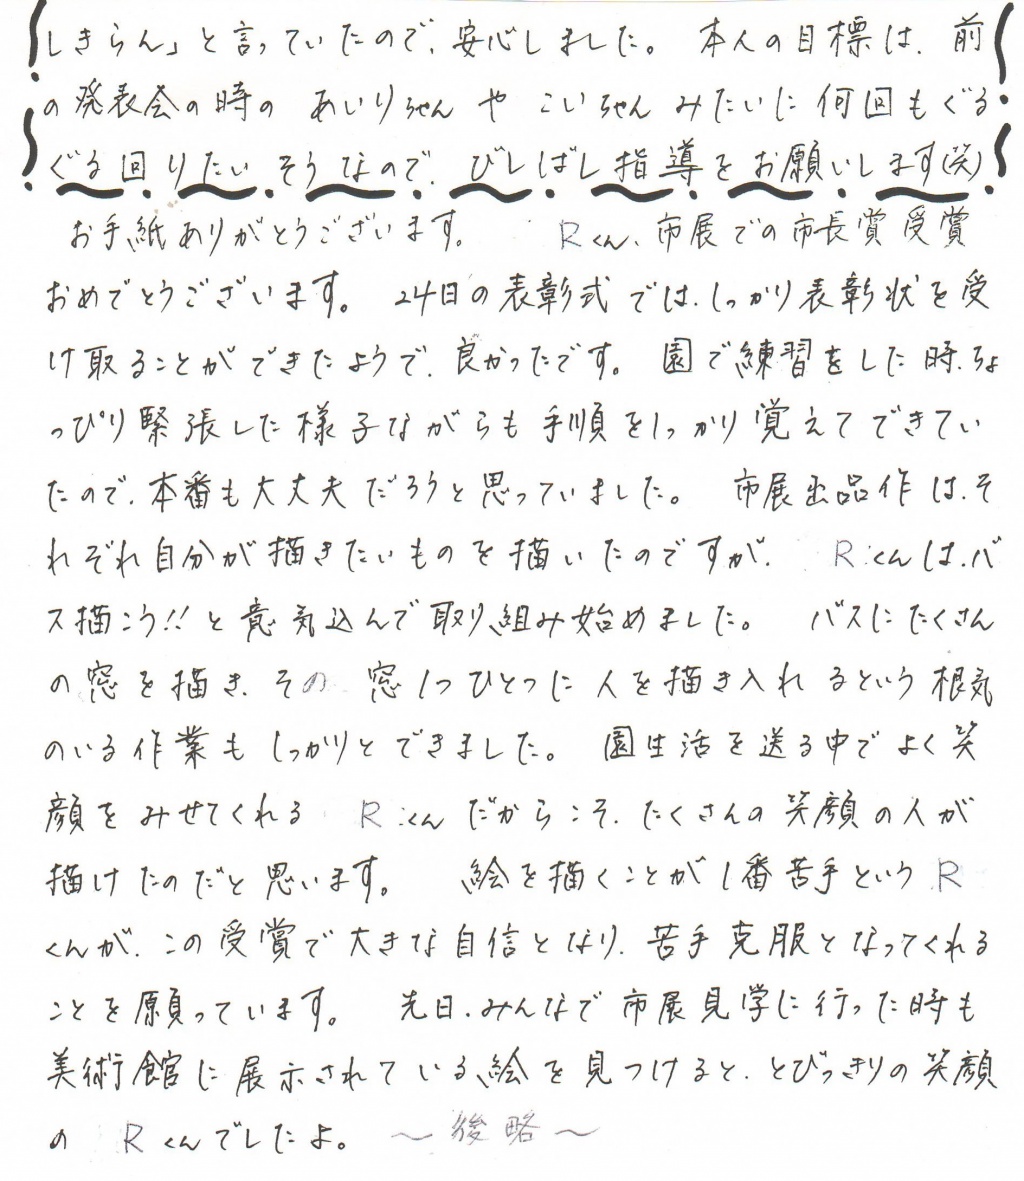 しきらん」と言っていたので、安心しました。 本人の目標は、前
の発表会の時の あいりちゃん や こいちゃん みたいに何回もぐる
ぐる回りたいそうなので、びしばし指導をお願いします(笑)
お手紙ありがとうございます。 Rくん、市展での市長賞受賞
おめでとうございます。 24日の表彰式では、しっかり表彰状を受
け取ることができたようで、良かったです。 園で練習をした時、ちょ
っぴり緊張した様子ながらも手順をしっかり覚えてできてい
たので、本番も大丈夫だろうと思っていました。 市展出品作は、そ
れぞれ自分が描きたいものを描いたのですが、 Rくんは、バ
ス描こう!!と意気込んで取り組み始めました。 バスにたくさん
の窓を描き、その窓1つひとつに人を描き入れるという根気
のいる作業もしっかりとできました。 園生活を送る中でよく笑
顔をみせてくれる Rくんだからこそ、たくさんの笑顔の人が
描けたのだと思います。 絵を描くことが1番苦手というR
くんが、この受賞で大きな自信となり、苦手克服となってくれる
ことを願っています。 先日、みんなで市展見学に行った時も
美術館に展示されている絵を見つけると、とびっきりの笑顔
の Rくんでしたよ。 〜後略〜